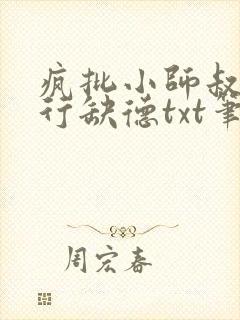 疯批小师叔
行缺德txt笔
周宏春